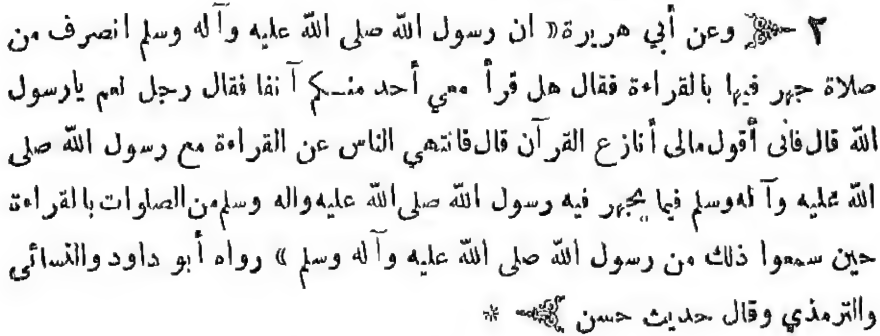 ٢ وعن أبي هريرة « ان رسول الله صلى الله عليه وآله وسلم انصرف من
صلاة جهر فيها بالقراءة فقال هل قرأ معي أحد منكم آنفا فقال رجل نعم يارسول
الله قال فانى أقول مالى أنازع القرآن قال فانتهي الناس عن القراءة مع رسول الله صلى
الله عليه وآله وسلم فيما يجهر فيه رسول الله صلى الله عليه واله وسلم من الصلوات بالقراءة
حين سمعوا ذلك من رسول الله صلى الله عليه وآله وسلم » رواه أبو داود والنسائى
والترمذي وقال حديث حسن *